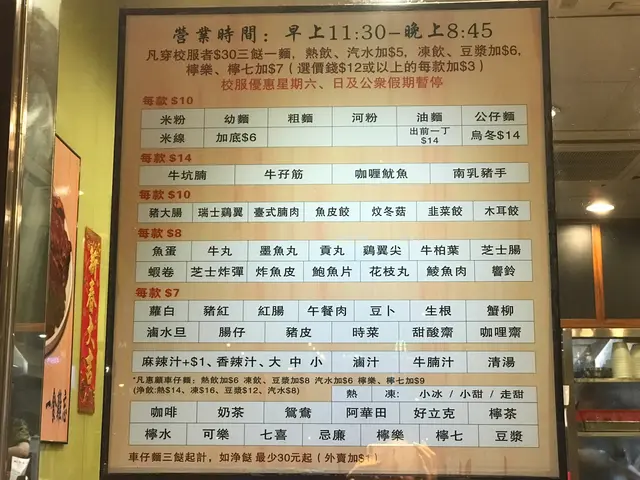 營業時間：早上11:30－晚上8:45
凡穿校服者$30三餸一麵，熱飲、汽水加$5，凍飲、豆漿加$6，
檸樂、檸七加$7（選價錢$12或以上的每款加$3）
校服優惠星期六、日及公眾假期暫停
每款 $10
米粉 幼麵 粗麵 河粉 油麵 公仔麵
米線 加底$6 出前一丁 $14 烏冬$14
每款 $14
牛坑腩 牛孖筋 咖喱魷魚 南乳豬手
每款 $10
豬大腸 瑞士鷄翼 臺式腩肉 魚皮餃 炆冬菇 韭菜餃 木耳餃
每款 $8
魚蛋 牛丸 墨魚丸 貢丸 鷄翼尖 牛柏葉 芝士腸
蝦卷 芝士炸彈 炸魚皮 鮑魚片 花枝丸 鯪魚肉 響鈴
每款 $7
蘿白 豬紅 紅腸 午餐肉 豆卜 生根 蟹柳
滷水旦 腸仔 豬皮 時菜 甜酸齋 咖哩齋
麻辣汁+$1、香辣汁、大 中 小 滷汁 牛腩汁 清湯
*凡惠顧車仔麵：熱飲加$6 凍飲、豆漿加$8 汽水加$6 檸樂、檸七加$9
(淨飲:熱$14、凍$16、豆漿$12、汽水$8) 熱 凍: 小冰 / 小甜 / 走甜
咖啡 奶茶 鴛鴦 阿華田 好立克 檸茶
檸水 可樂 七喜 忌廉 檸樂 檸七 豆漿
車仔麵三餸起計，如淨餸 最少30元起（外賣加$1）
新春大吉